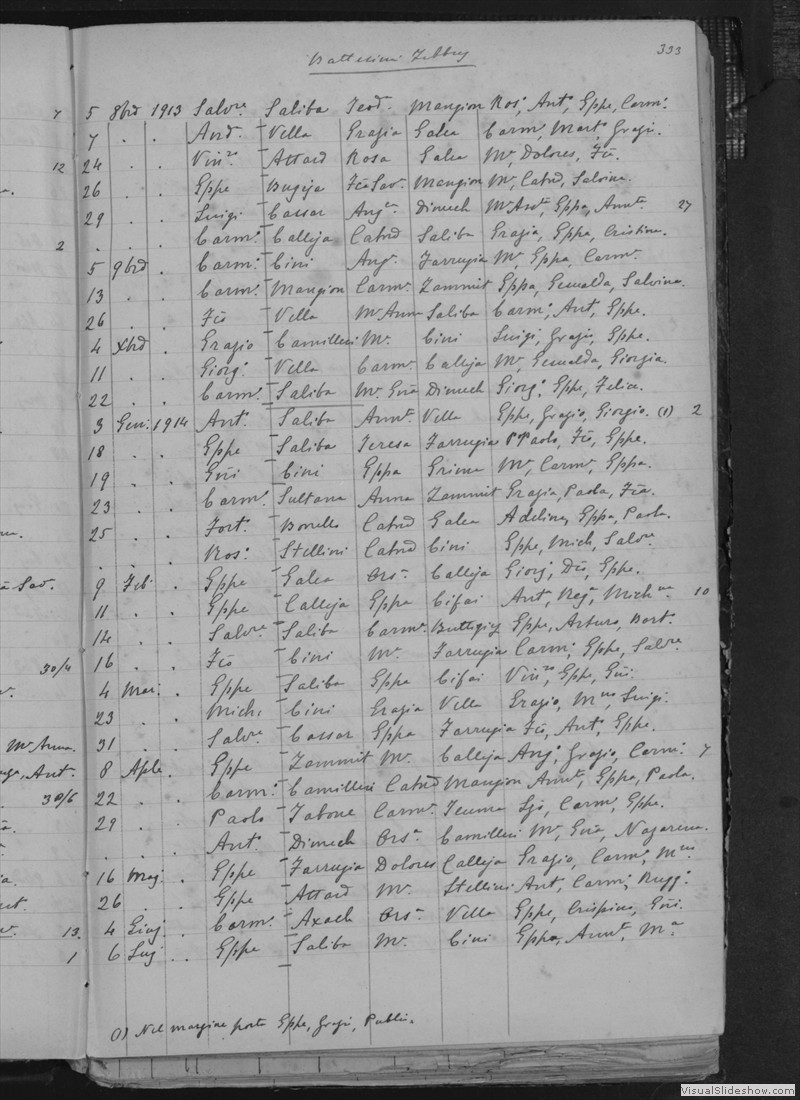 Battesimi Zebbug
333
7 5 8bre 1913 Salvre Saliba Teod. Mangion Ros, Anto, Eppe, Carmo
7 . . And. Vella Grazia Galea Carmo, Marta, Grazi.
12 24 . . Vinzo Attard Rosa Galea Ma, Dolores, Fca
26 . . Eppe Bugeja Fca Sav. Mangion Ma, Catnd, Salvina.
29 . . Luigi Cassar Anga Dimech Ma Anta, Eppa, Annta 27
2 . . . Carmo Calleja Catnd Saliba Grazia, Eppa, Cristina.
5 9bre . Carmo Cini Anga Farrugia Ma, Eppa, Carma
13 . . Carmo Mangion Carma Zammit Eppa, Gemalda, Salvina.
26 . . Fco Vella Ma Anna Saliba Carmo, Anto, Eppe.
4 Xbre . Grazio Camilleri Ma Cini Luigi, Grazi, Eppe.
11 . . Giorgo Vella Carma Calleja Ma, Gemalda, Giorgia.
22 . . Carmo Saliba Ma Gna Dimech Giorgo, Eppe, Felice.
3 Gen. 1914 Anto Saliba Annta Vella Eppe, Grazio, Giorgio. (1) 2
18 . . Eppe Saliba Teresa Farrugia P Paolo, Fco, Eppe.
19 . . Gni Cini Eppa Grima Ma, Carma, Eppa.
23 . . Carma Sultana Anna Zammit Grazia, Paola, Fca.
25 . . Fort. Borello Catnd Galea Adelina, Eppa, Paola.
. . . Ros. Stellini Catnd Cini Eppe, Mich, Salvre
9 Feb. . Eppe Galea Orsa Calleja Giorg, Dco, Eppe.
11 . . Eppe Calleja Eppa Cifai Anta, Rega, Michna 10
14 . . Salvre Saliba Carma Buttigieg Eppe, Arturo, Bart.
30/4 16 . . Fco Cini Ma Farrugia Carmo, Eppe, Salvre
4 Mar. . Eppe Saliba Eppa Cifai Vinzo, Eppe, Gni.
23 . . Mich. Cini Grazia Vella Grazio, Mno, Luigi.
Ma Anna. 31 . . Salvre Cassar Eppa Farrugia Fco, Anto, Eppe.
Ant. 8 Aple . Eppe Zammit Ma Calleja Ang, Grazio, Carmo 7
30/6 22 . . Carma Camilleri Catnd Mangion Annta, Eppa, Paola.
29 . . Paolo Tabone Carma Teuma Carmo, Eppe.
. . . Anta Dimech Orsa Camilleri Ma, Gna, Nazarena.
16 Mag. . Eppe Farrugia Dolores Calleja Grazio, Carmo, Mno
26 . . Eppe Attard Ma Stellini Ant, Carmo, Rugg.
13. 4 Giug . . Carma Axach Orsa Vella Eppe, Crispino, Gni.
1 6 Lug . . Eppa Saliba Ma Cini Eppa, Annta, Ma
(1) Nel margine porta Eppe, Grazi, Publi.
VisualSlideshow.com